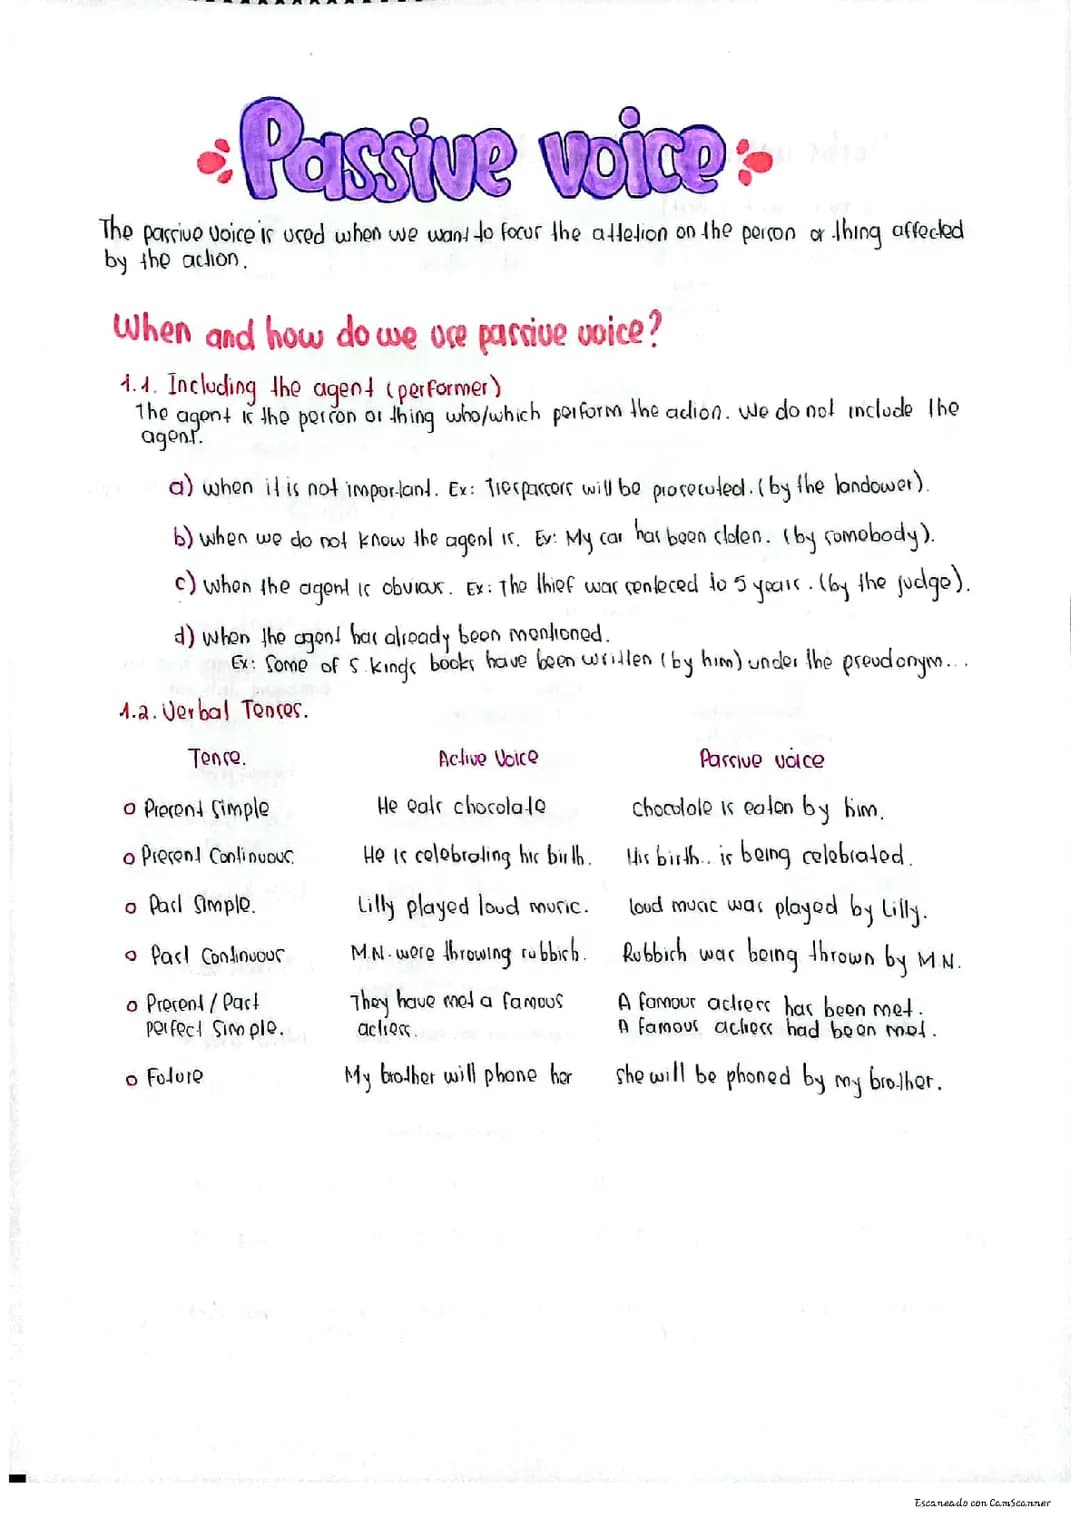 Passive voice
The passive voice is used when we want to focus the attetion on the person or thing affected
by the action.
When and how do we use passive voice?
1.1. Including the agent (performer)
The agent is the person or thing who/which perform the action. We do not include the
agent.
a) when it is not important. Ex: Trespassers will be prosecuted. (by the landower).
b) when we do not know the agent is. Ex: My car has been stolen. (by somebody).
c) when the agent is obvious. Ex: The thief was senteced to 5 years. (by the judge).
d) when the agent has already been mentioned.
Ex: Some of S. kings books have been written (by him) under the pseudonym...
1.2. Verbal Tenses.
Tense. Active Voice Passive voice
o Present Simple He eats chocolate chocolate is eaten by him.
o Present Continuous. He is celebrating his birth. His birth.. is being celebrated.
o Past Simple. Lilly played loud music. loud music was played by Lilly.
o Past Continuous M.N. were throwing rubbish. Rubbish was being thrown by M N.
o Present / Past They have met a famous A famous actress has been met.
perfect Simple. actress. A famous actress had been met.
o Future My brother will phone her she will be phoned by my brother.
Escaneado con CamScanner